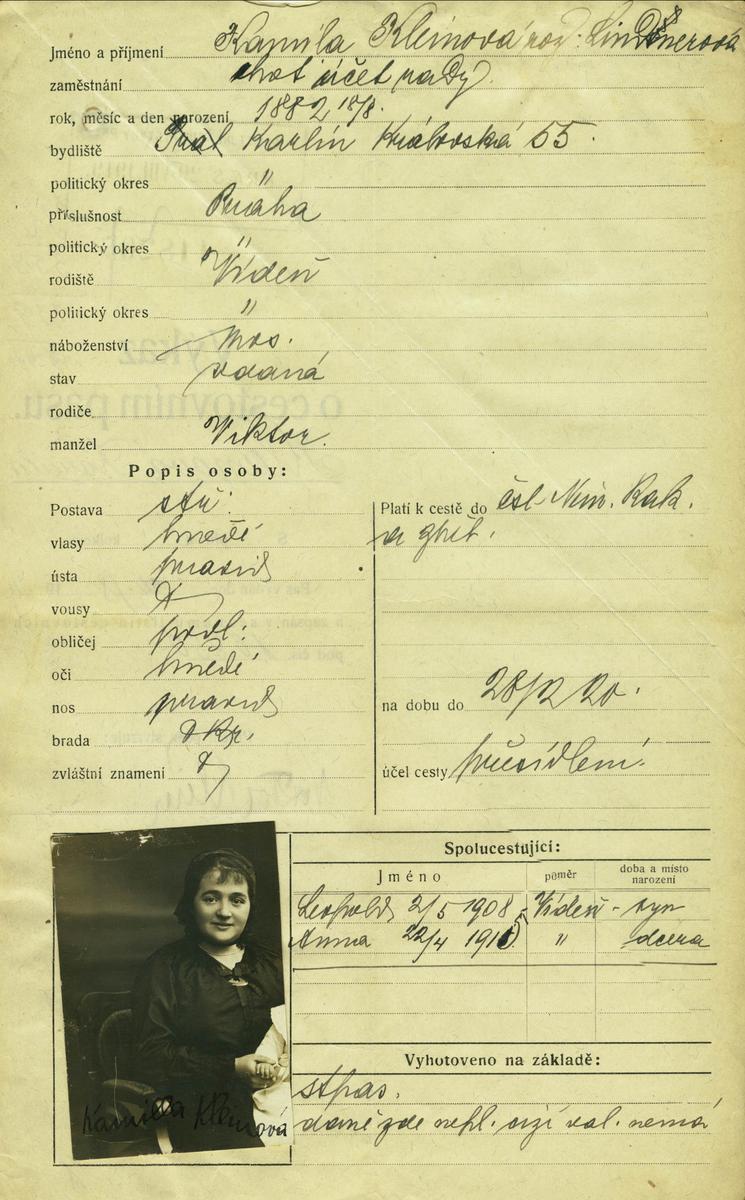 Jméno a příjmení Kamila Kleinová roz. Lindnerová
zaměstnání choť účet rady
rok, měsíc a den narození 1882 18/8.
bydliště Karlín Královská 55.
politický okres "
příslušnost Praha
politický okres "
rodiště Vídeň
politický okres "
náboženství mos.
stav vdaná
rodiče
manžel Viktor.
Popis osoby:
Postava stř:
vlasy hnědé
ústa pravid
vousy
obličej podl:
oči hnědé
nos pravid
brada okr.
zvláštní znamení
Platí k cestě do čsl. Něm. Rak.
a zpět.
na dobu do 28/12 20.
účel cesty přesídlení.
Spolucestující:
Jméno poměr doba a místo narození
Leopold 2/5 1908 Vídeň - syn
Anna 22/4 191 " dcera
Vyhotoveno na základě:
st pas.
daně zde nepl. cizí val. nemá
Kamilla Kleinová